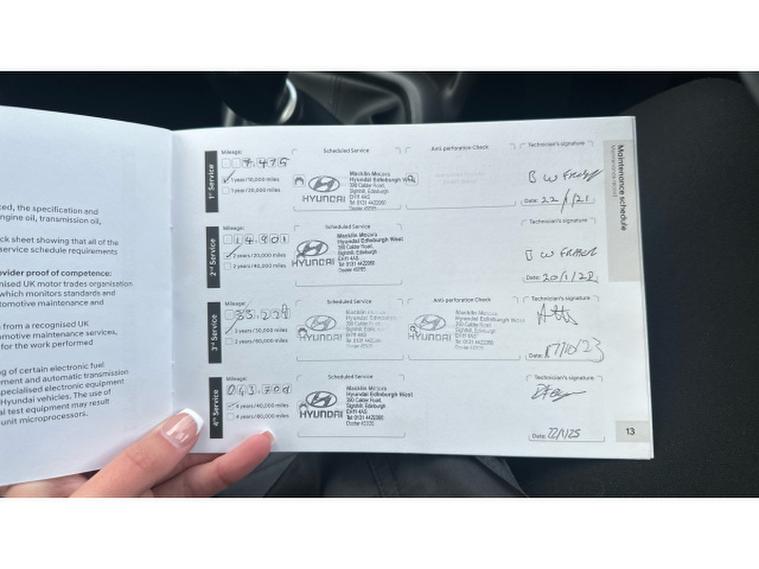 ted, the specification and
ngine oil, transmission oil,
ck sheet showing that all of the
service schedule requirements
ovider proof of competence:
gnised UK motor trades organisation
which monitors standards and
tomotive maintenance and
n from a recognised UK
tomotive maintenance services,
for the work performed
ng of certain electronic fuel
ement and automatic transmission
specialised electronic equipment
Hyundai vehicles. The use of
al test equipment may result
unit microprocessors.
Maintenance schedule
Maintenance record
1st Service
Mileage:
7,475
1 year/10,000 miles
1 year/20,000 miles
Scheduled Service
HYUNDAI
Macklin Motors
Hyundai Edinburgh West
390 Calder Road,
Sighthill, Edinburgh
EH11 4AS
Tel: 0131 4422060
Anti perforation Check
Technician's signature
B W FRASER
Date: 22/1/21
2nd Service
Mileage:
14,901
2 years/20,000 miles
2 years/40,000 miles
Scheduled Service
HYUNDAI
Macklin Motors
Hyundai Edinburgh West
390 Calder Road,
Sighthill, Edinburgh
EH11 4AS
Tel: 0131 4422060
Technician's signature
B W FRASER
Date: 20/1/22
3rd Service
Mileage:
33,229
3 years/30,000 miles
3 years/60,000 miles
Scheduled Service
HYUNDAI
Macklin Motors
Hyundai Edinburgh West
390 Calder Road,
Sighthill, Edinburgh
EH11 4AS
Anti-perforation Check
HYUNDAI
Macklin Motors
Hyundai Edinburgh West
390 Calder Road,
Sighthill, Edinburgh
EH11 4AS
Technician's signature
Date: 17/10/23
4th Service
Mileage:
4 years/40,000 miles
4 years/80,000 miles
Scheduled Service
HYUNDAI
Macklin Motors
Hyundai Edinburgh West
390 Calder Road,
Sighthill, Edinburgh
EH11 4AS
Tel: 0131 4422060
Technician's signature
Date: 22/1/25
13